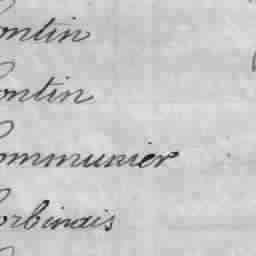 ontin
ontin
ommunier
orbinais